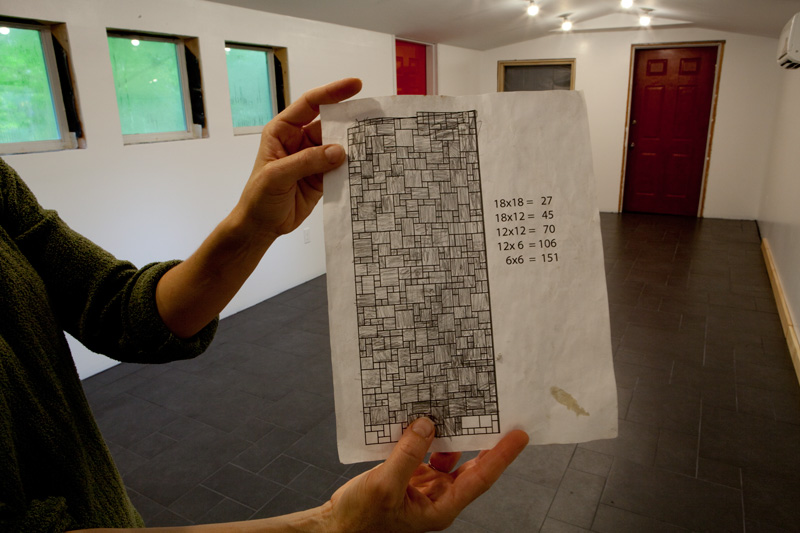 18x18 = 27
18x12 = 45
12x12 = 70
12x 6 = 106
6x6 = 151